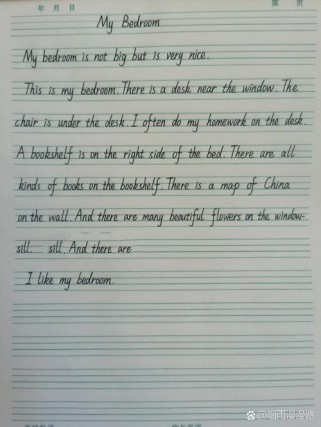 年 月 日
My Bedroom
My bedroom is not big but is very nice.
This is my bedroom. There is a desk near the window. The
chair is under the desk. I often do my homework on the desk.
A bookshelf is on the right side of the bed. There are all
kinds of books on the bookshelf. There is a map of China
on the wall. And there are many beautiful flowers on the window-
sill. sill. And there are
I like my bedroom.